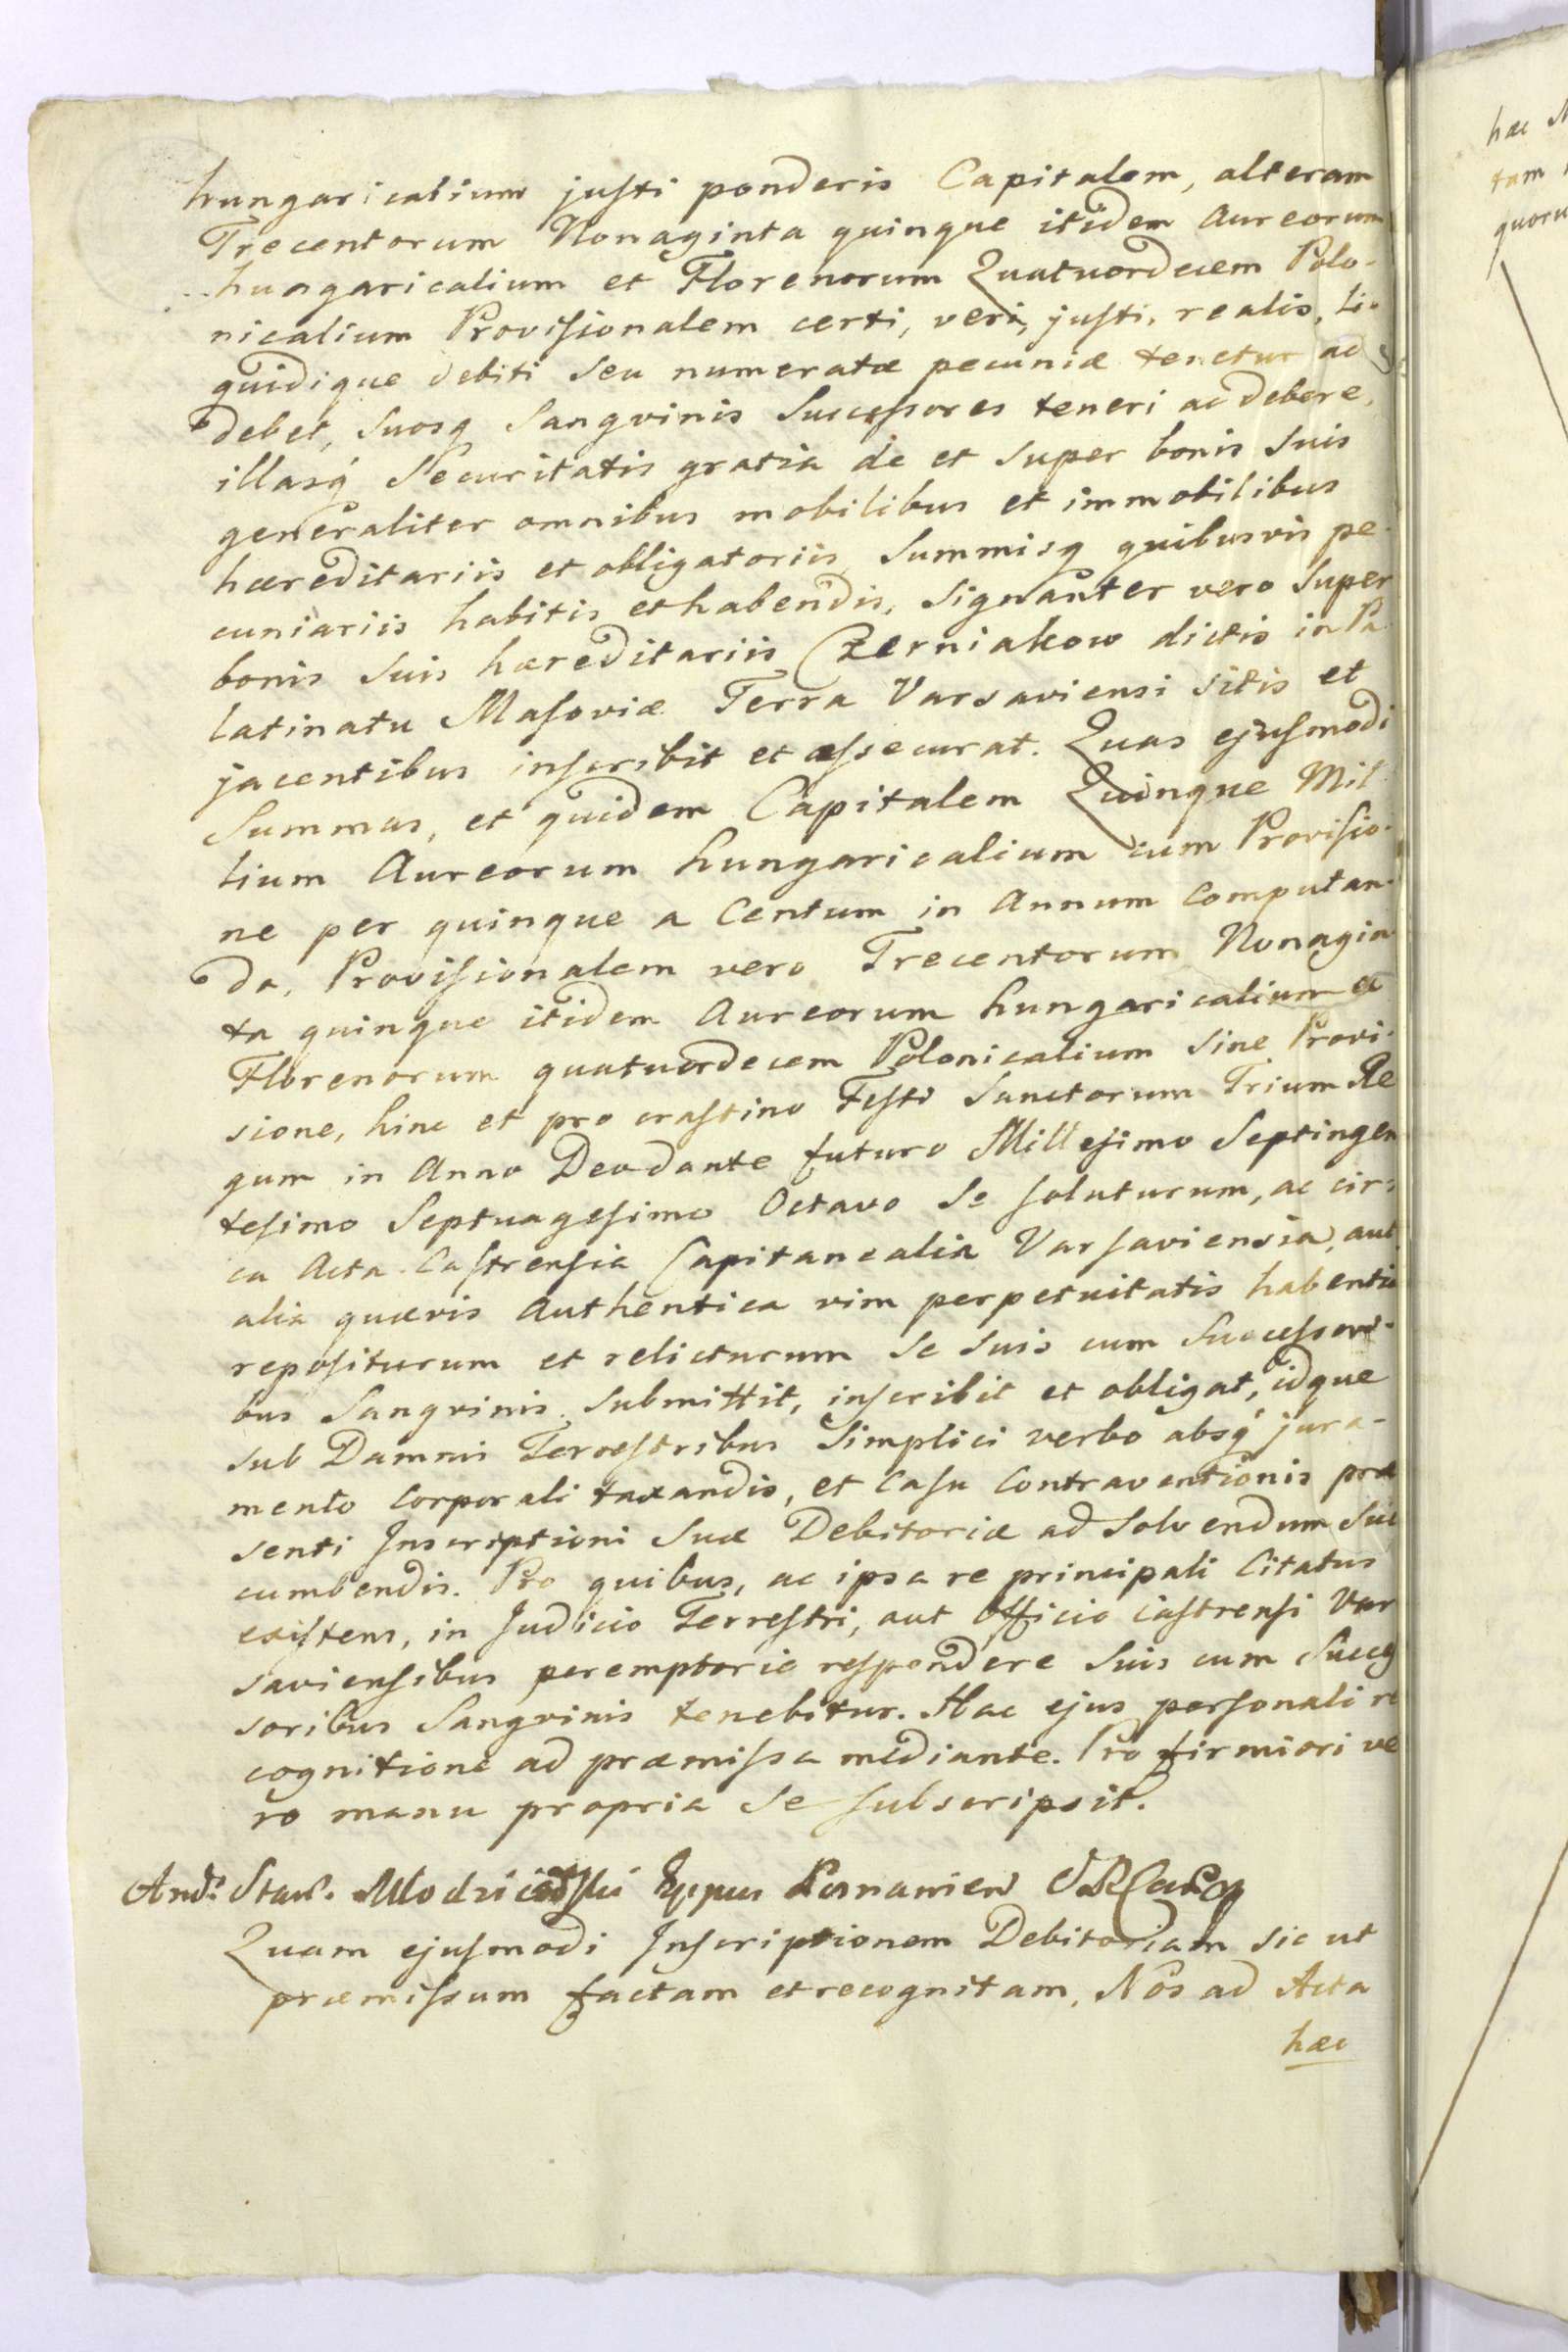 hungaricalium justi ponderis Capitalem, alteram
Trecentorum Nonaginta quinque itidem Aureorum
hungaricalium et Florenorum Quatuordecem Polo-
nicalium Provisionalem certi, veri, justi, realis, Li-
quidique debiti seu numeratæ pecuniæ tenetur ac
debet, suosq sangvinis Successores teneri ac debere,
illasq́ Securitatis gratia de et super bonis suis
generaliter omnibus mobilibus et immobilibus
hæreditariis et obligatoriis Summisq quibusvis pe-
cuniariis habitis et habendis, signanter vero super
bonis suis hæreditariis Czerniakow dictis in Pa
latinatu Masoviæ Terra Varsaviensi sitis et
jacentibus inscribit et assecurat. Quas ejusmodi
Summas, et quidem Capitalem Quinque Mil-
lium Aureorum hungaricalium cum Provisio-
ne per quinque a Centum in Annum Computan-
da, Provisionalem vero Trecentorum Nonagin-
ta quinque itidem Aureorum hungaricalium et
Florenorum quatuordecem Polonicalium sine Provi-
sione, hinc et pro crastino Festi Sanctorum Trium Re
gum in Anno Deo dante futuro Millesimo Septingen
tesimo Septuagesimo Octavo Se soluturum, ac cir-
ca Acta Castrensia Capitanealia Varsaviensia, aut
alia quævis Authentica vim perpetuitatis habentia
repositurum et relicturum se suis cum Successori-
bus Sangvinis submittit, inscribit et obligat, idque
sub Damnis Terrestribus Simplici verbo absq́ jura-
mento Corporali taxandis, et Casu Contraventionis præ
senti Inscriptioni Suæ Debitoriæ ad Solvendum Suc
cumbendis. Pro quibus, ac ipsa re principali Citatus
existens, in Judicio Terrestri, aut Officio Castrensi Var
saviensibus peremptorie respondere suis cum Succes
soribus Sangvinis tenebitur. Hac ejus personali re
cognitione ad præmissa mediante. Pro firmiori ve
ro manu propria se subscripsit.
Andr. Stan. Młodziejowski Eppus Posnanien
Quam ejusmodi Inscriptionem Debitoriam sic ut
præmissum factam et recognitam, Nos ad Acta
hæc
hæc
tam